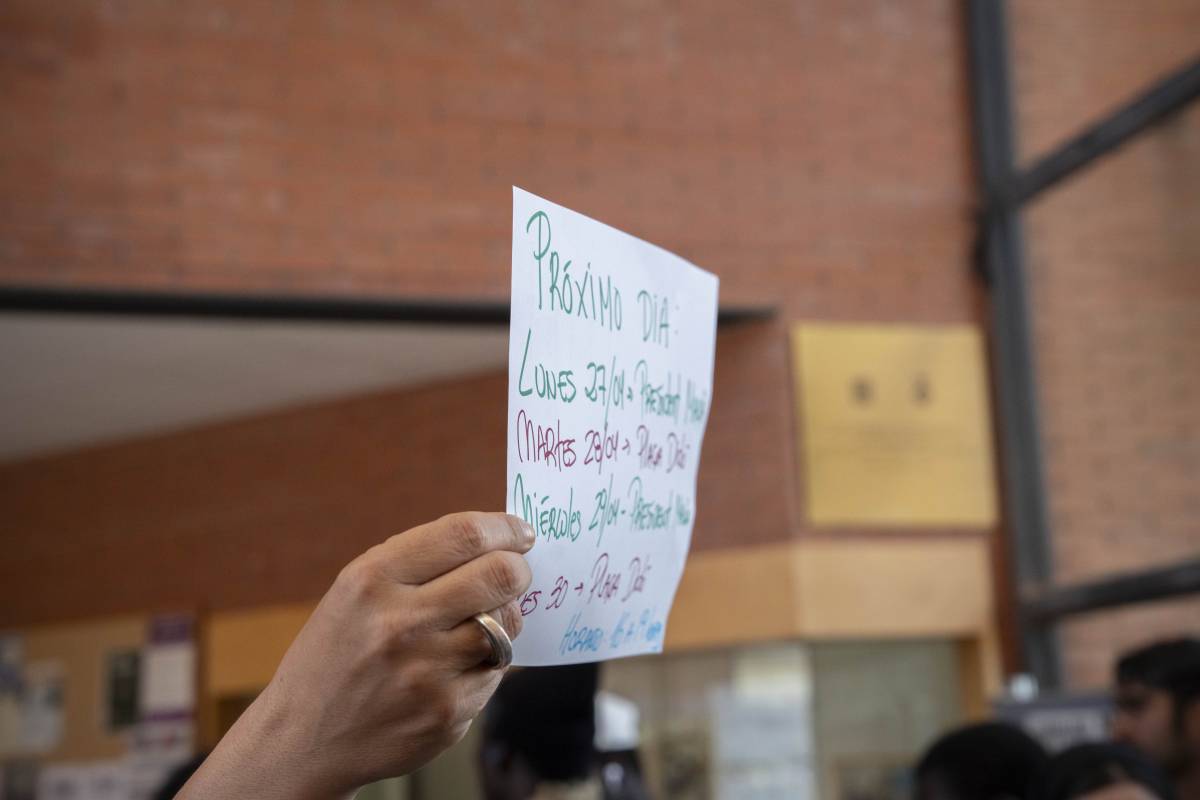 PRÓXIMO DIA:
LUNES 27/04 → PRESIDENT
MARTES 28/04 → PLAÇA
MIÉRCOLES 29/04 - PRESIDENT
ES 30 → PLAÇA
HORARIO: A